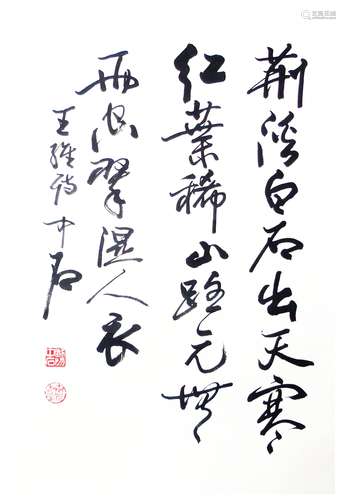 荆溪白石出天寒
红葉稀山路元無
雨空翠濕人衣
王維詩中石